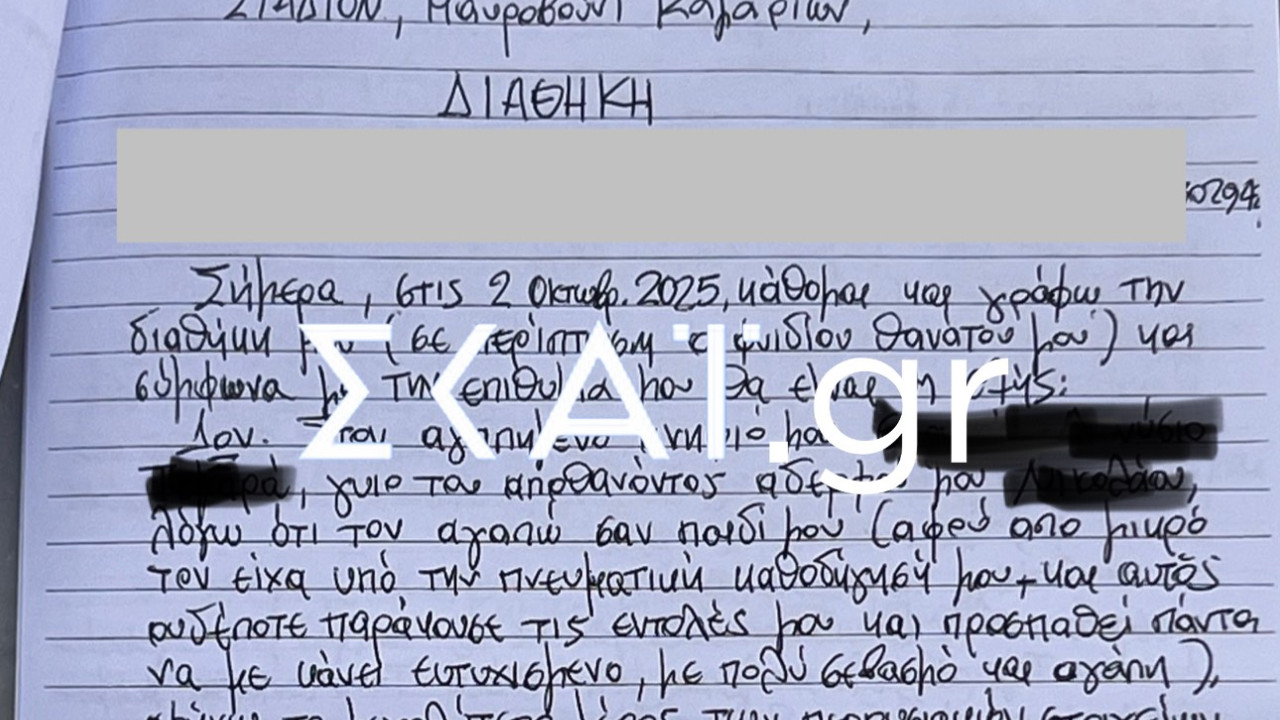 ΣΤΑΔΙΟΝ, Μαυροβουνί Καμαρίων,
ΔΙΑΘΗΚΗ
Σήμερα, στις 2 Οκτωβρ. 2025, κάθομαι και γράφω την
διαθήκη μου (σε περίπτωση αιφνιδίου θανάτου μου) και
σύμφωνα με την επιθυμία μου θα είναι η εξής:
ΣΚΑΪ.gr
1ον. Στον αγαπημένο ανηψιό μου
, γυιο του αποθανόντος αδερφού μου
λόγω ότι τον αγαπώ σαν παιδί μου (αφού απο μικρό
τον είχα υπό την πνευματική καθοδήγησή μου, και αυτός
ουδέποτε παράκουσε τις εντολές μου και προσπαθεί πάντα
να με κάνει ευτυχισμένο, με πολύ σεβασμό και αγάπη),